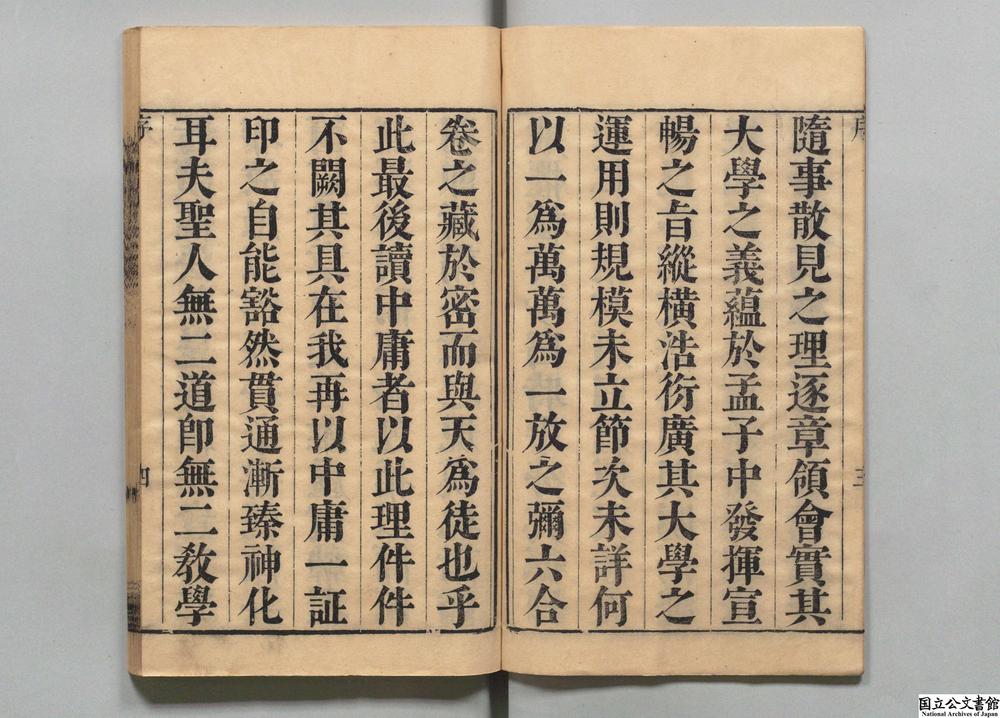 序
三
隨事散見之理逐章領會實其
大學之義蘊於孟子中發揮宣
暢之旨縱橫浩衍廣其大學之
運用則規模未立節次未詳何
以一爲萬萬爲一放之彌六合
卷之藏於密而與天爲徒也乎
此最後讀中庸者以此理件件
不闕其具在我再以中庸一証
印之自能豁然貫通漸臻神化
耳夫聖人無二道卽無二教學
序
四
国立公文書館
National Archives of Japan